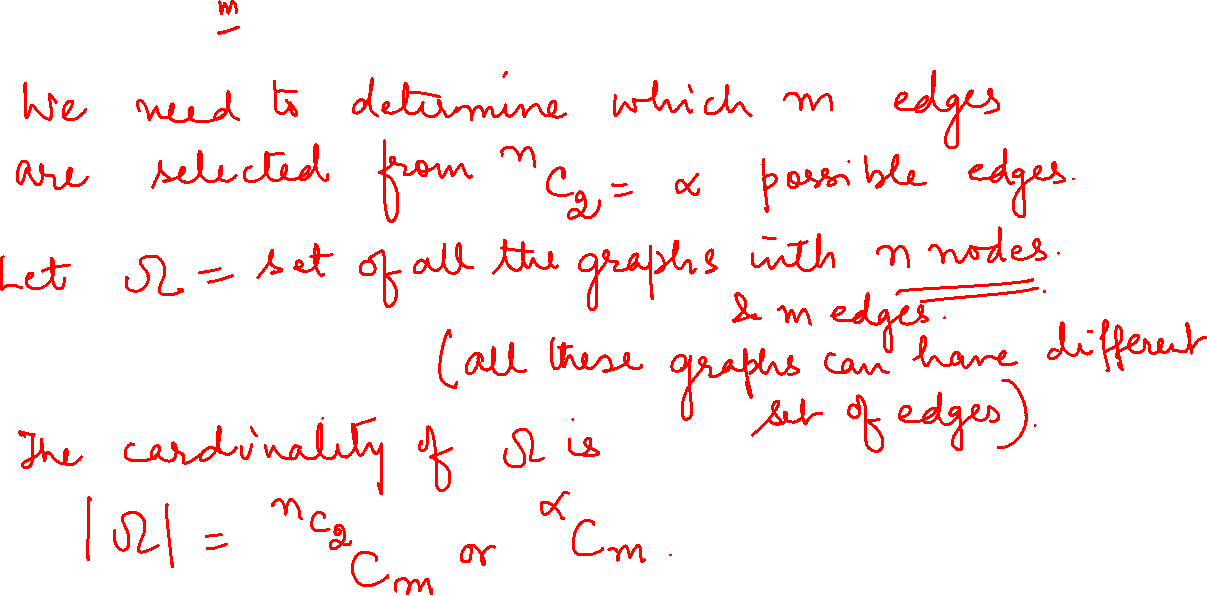 m
We need to determine which m edges
are selected from ⁿC₂ = α possible edges.
Let Ω = set of all the graphs with n nodes.
& m edges.
(all these graphs can have different
set of edges).
The cardinality of Ω is
|Ω| = ⁿC₂Cₘ or ᵅCₘ.